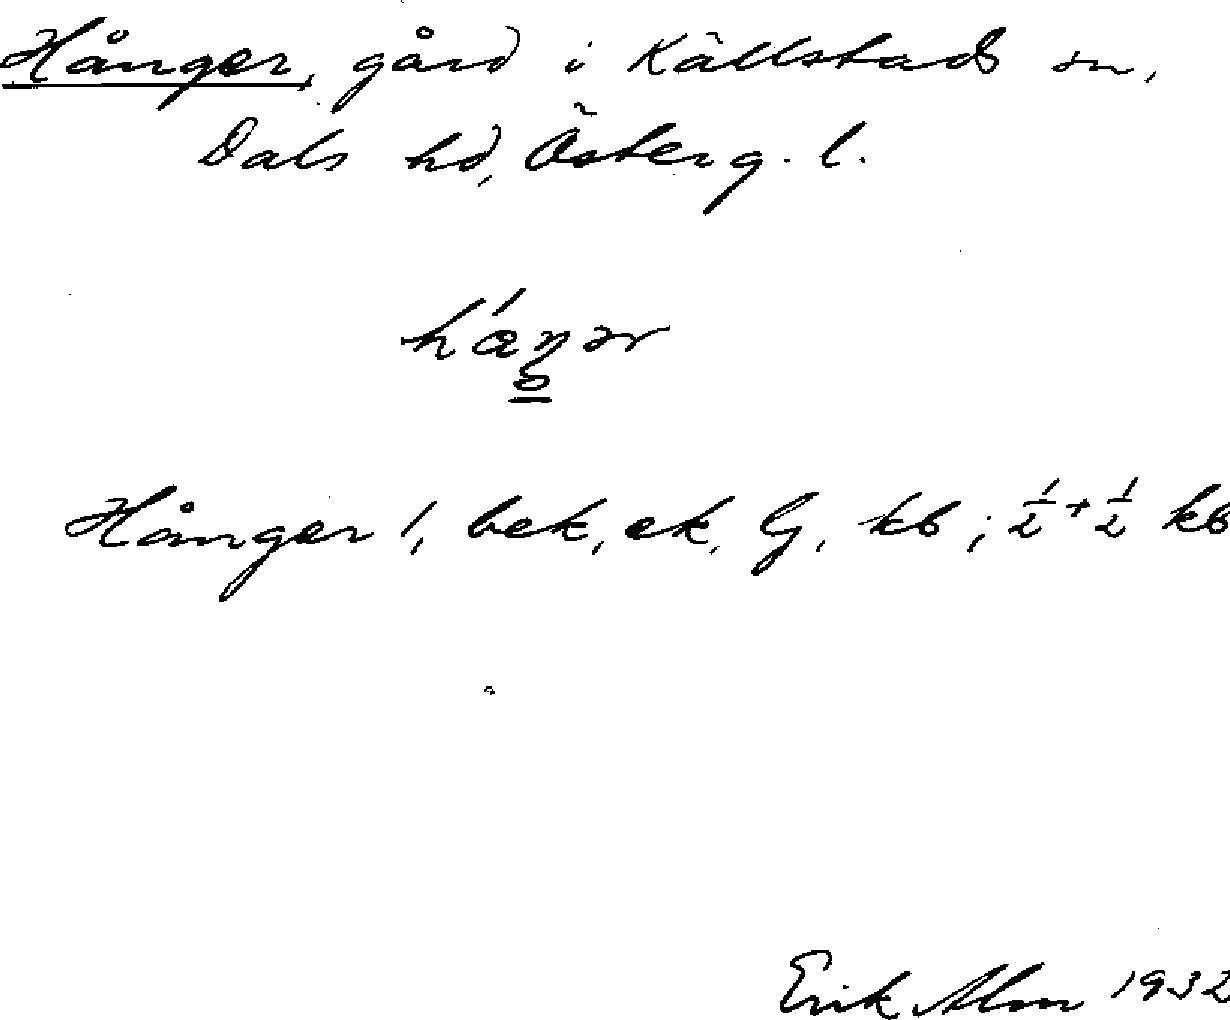 Hånger, gård i Källstads sn,
Dals hd, Österg. l.
Hånger 1, bek, ek, G, kb; ½+½ kb
Erik Alm 1932